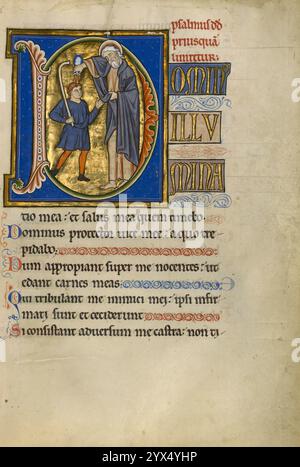 psalmus dd
priusquā
liniretur.
D OMIN
ILLU
MINA
tio mea: et salus mea quem timebo.
Dominus protector vite mee: a quo tre
pidabo.
Dum appropiant super me nocentes: ut
edant carnes meas.
Qui tribulant me inimici mei: ipsi infir
mati sunt et ceciderunt
Si consistant adversum me castra: non ti
alamy
Image ID: 2YX4YHP
www.alamy.com